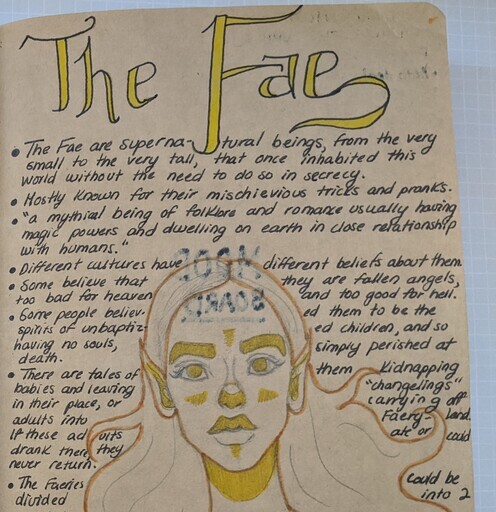 The Fae
• The Fae are superna- tural beings, from the very
small to the very tall, that once inhabited this
world without the need to do so in secrecy.
• Mostly known for their mischievious tricks and pranks.
• "a mythial being of folklore and romance usually having
magic powers and dwelling on earth in close relationship
with humans."
• Different cultures have different beliefs about them.
• Some believe that they are fallen angels,
too bad for heaven and too good for hell.
• Some people believ- ed them to be the
spirits of unbaptiz- ed children, and so
having no souls, simply perished at
death.
• There are tales of them Kidnapping
babies and leaving "changelings"
in their place, or carrying off
adults into Faery- land.
If these ad ults ate or could
drank there, they
never return.
• The Faeries could be
divided into 2